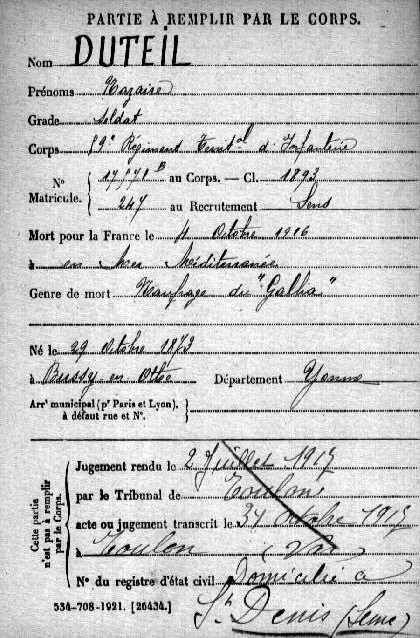 PARTIE À REMPLIR PAR LE CORPS.
Nom DUTEIL
Prénoms Nazaire
Grade soldat
Corps 89e Régiment Territal d'Infanterie
No Matricule. 17571 B au Corps. — Cl. 1893
247 au Recrutement Sens
Mort pour la France le 4 Octobre 1916
à en Mer Méditerranée
Genre de mort Naufrage du "Gallia"
Né le 29 Octobre 1873
à Bussy en Othe Département Yonne
Arrt municipal (pr Paris et Lyon), à défaut rue et No.
Cette partie n'est pas à remplir par le Corps.
Jugement rendu le 2 Juillet 1917
par le Tribunal de Toulon
acte ou jugement transcrit le 31 Octobre 1917
à Toulon (Var)
No du registre d'état civil Domicilié à
534-708-1921. [26434.] St Denis (Seine)